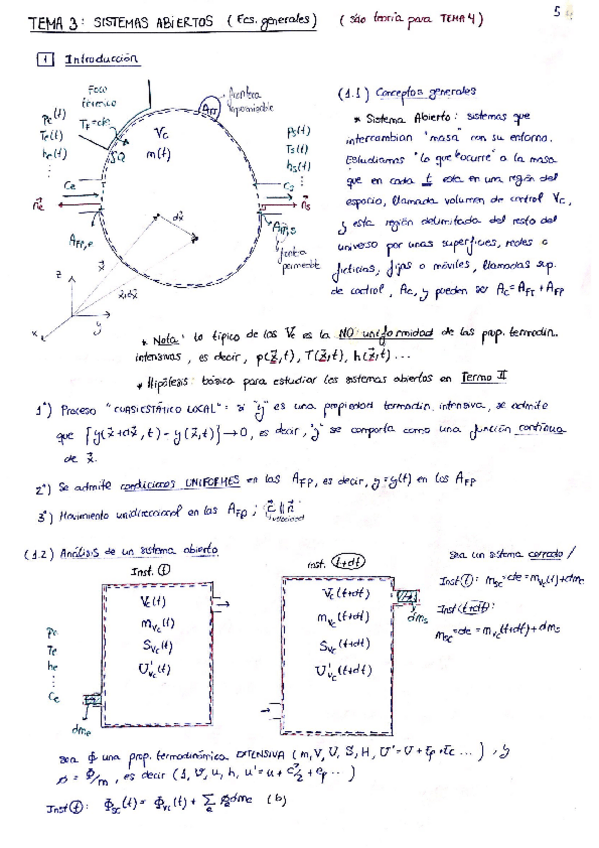 TEMA 3: SISTEMAS ABIERTOS (Ecs. generales) (sólo teoría para TEMA 4)
5
1 Introducción
Foco térmico
TF=cte
δQ
Vc
m(t)
AFI
frontera impermeable
Pe(t)
Te(t)
he(t)
⋮
Ce
n⃗e
AFP,e
Ps(t)
Ts(t)
hs(t)
⋮
Cs
n⃗s
AFP,s
frontera permeable
dx⃗
x⃗
x⃗+dx⃗
z
x
y
(1.1) Conceptos generales
* Sistema Abierto: sistemas que
intercambian "masa" con su entorno.
Estudiamos "lo que ocurre" a la masa
que en cada t está en una región del
espacio, llamada volumen de control Vc,
y esta región delimitada del resto del
universo por unas superficies, reales o
ficticias, fijas o móviles, llamadas sup.
de control, Ac, y pueden ser Ac = AFI + AFP
* Nota: lo típico de los Vc es la NO uniformidad de las prop. termodin.
intensivas, es decir, p(x⃗,t), T(x⃗,t), h(x⃗,t)...
* Hipótesis: básica para estudiar los sistemas abiertos en Termo II
1ª) Proceso "CUASIESTÁTICO LOCAL": si "y" es una propiedad termodin. intensiva, se admite
que {y(x⃗+dx⃗, t) - y(x⃗,t)} → 0, es decir, "y" se comporta como una función continua
de x⃗.
2ª) Se admite condiciones UNIFORMES en las AFP, es decir, y=y(t) en las AFP
3ª) Movimiento unidireccional en las AFP; c⃗ ∥ n⃗
velocidad
(1.2) Análisis de un sistema abierto
Inst. t
Vc(t)
mVc(t)
SVc(t)
U'Vc(t)
Pe
Te
he
⋮
Ce
dme
inst. t+dt
Vc(t+dt)
mVc(t+dt)
SVc(t+dt)
U'Vc(t+dt)
dms
Sea un sistema cerrado /
Inst t: msc=cte=mVc(t)+dme
Inst t+dt:
msc=cte=mVc(t+dt)+dms
Sea Φ una prop. termodinámica EXTENSIVA (m, V, U, S, H, U'=U+Ep+Ec ...), y
φ = Φ/m, es decir (1, v, u, h, u'=u+c²/2+ep ...)
Inst t: Φsc(t) = ΦVc(t) + Σe φe dme (b)